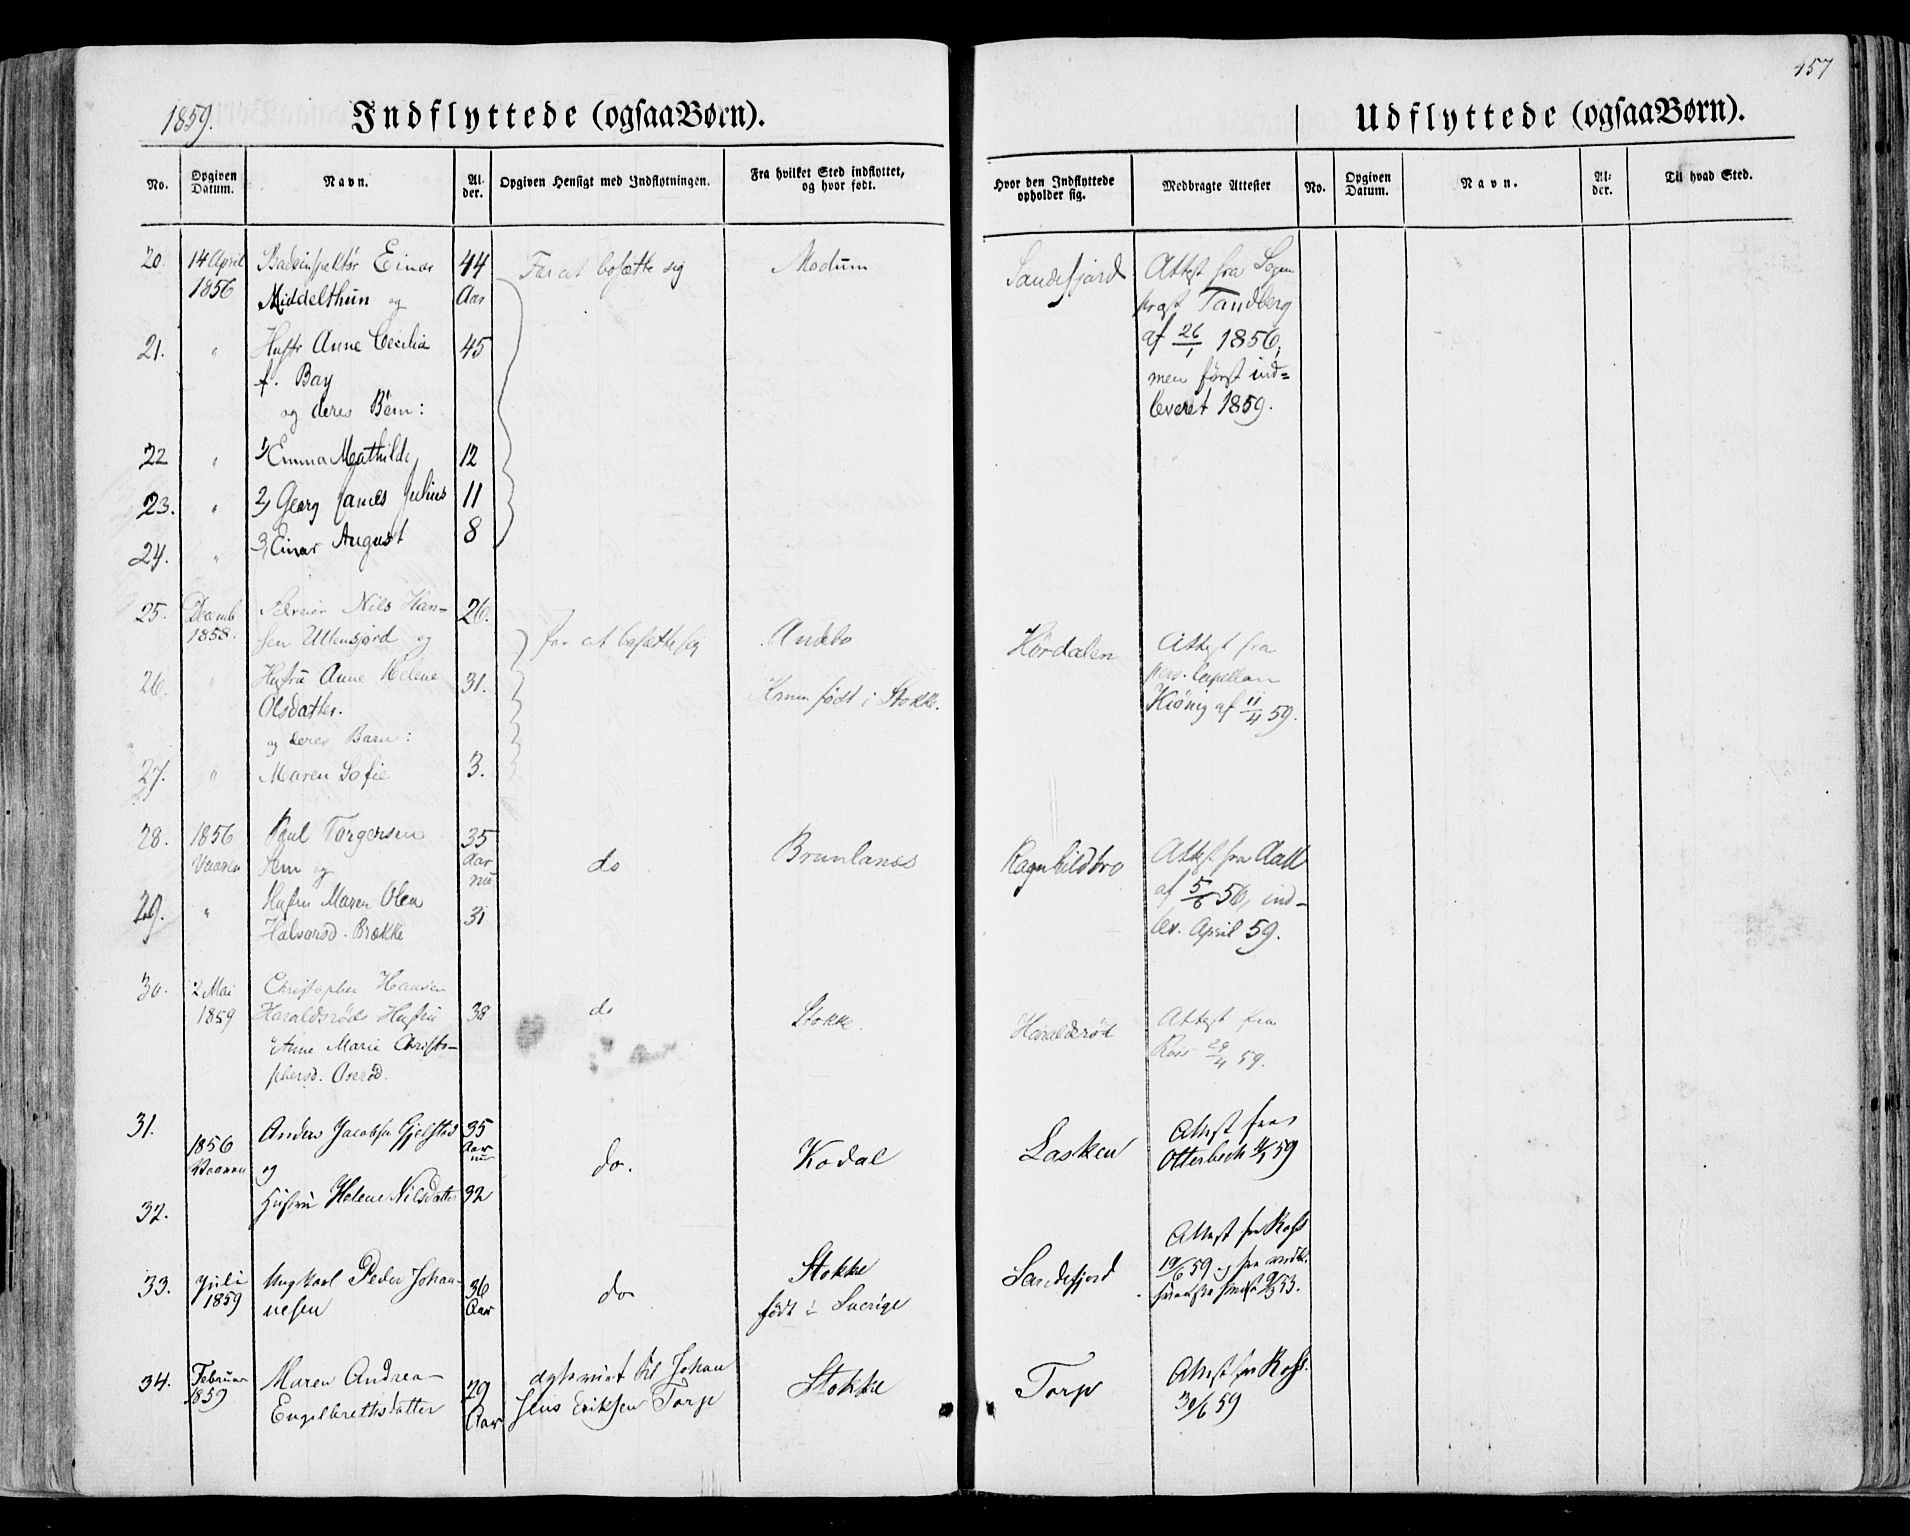 457
1859.
Indflyttede (ogsaa Børn).
Udflyttede (ogsaa Børn).
No. Opgiven Datum. Navn. Al-der. Opgiven Hensigt med Indflytningen. Fra hvilket Sted indflyttet, og hvor født. Hvor den Indflyttede opholder sig. Medbragte Attester No. Opgiven Datum. Navn. Al-der. Til hvad Sted.
20. 14 April Badeinspektör Einar 44 For at bosætte sig Modum Sandefjord Attest fra Sogne
1856 Middelthun og Aar præst Tandberg
af 26/1 1856,
21. " Hustr Anne Cecilia 45
men först ind=
f. Bay
leveret 1859.
og deres Börn:
22 " 1) Emma Mathilde 12
23. " 2) Georg James Julius 11
24. " 3) Einar August 8
25. Decemb Nils Han- 26.
1858. sen og for at bosætte sig Andebo Hördalen Attest fra
26. " Hustru Anne Helene 31. pers. Capellan
Olsdatter. Konen født i Stokke. Kiönig af 11/4 59.
og deres Barn:
27. " Maren Sofie 3.
28. 1856 Paul Torgersen 35
Vaaren Sem og Aar nu do Brunlanes Ragnhildbro Attest fra Aall
af 5/6 56, ind-
29. " Hustru Maren Olea 31
Halvorsd. Brække lev. April 59.
30. 2 Mai Christopher Hansen
1859 Haraldsröds Hustru 38 do Stokke. Haraldsröd Attest fra
Anne Marie Christo- 29/4 59.
phersd. Aseröd.
31. 1856 Anders Jacobsen Gjelstad 35 Aar nu do. Kodal Lasken Attest fra
Vaaren og Otterbech 59
32. Hustru Helene Nilsdatter 32
33. Juli Ungkarl Peder Johan- 36 do Stokke Sandefjord Attest fra Ross
1859 nesen Aar født i Sverige 19/6 59 og fra
53.
34. Februar Maren Andrea 29 til Johan Stokke Torp Attest fra Ross.
1859 Engelbrettsdatter Aar Jens Eriksen Torp 30/6 59